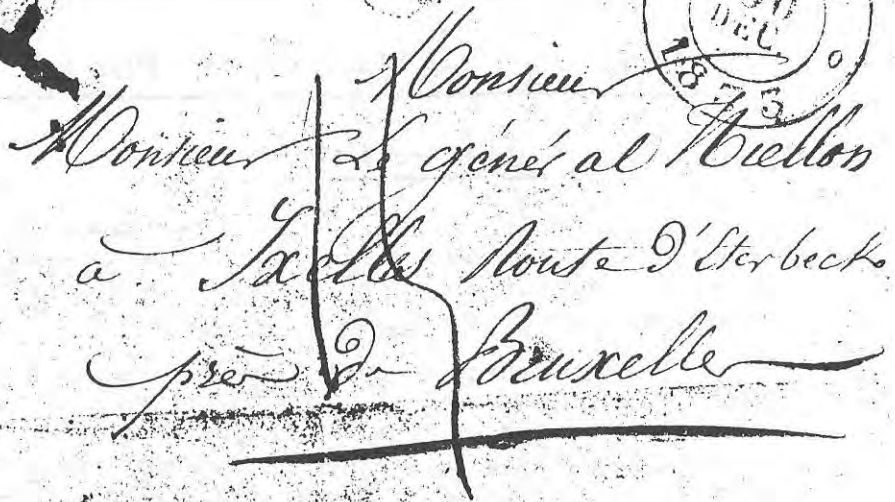 DEC.
Monsieur
Monsieur Le général Niellon
à Ixelles Route d'Eterbeck
près de Bruxelles